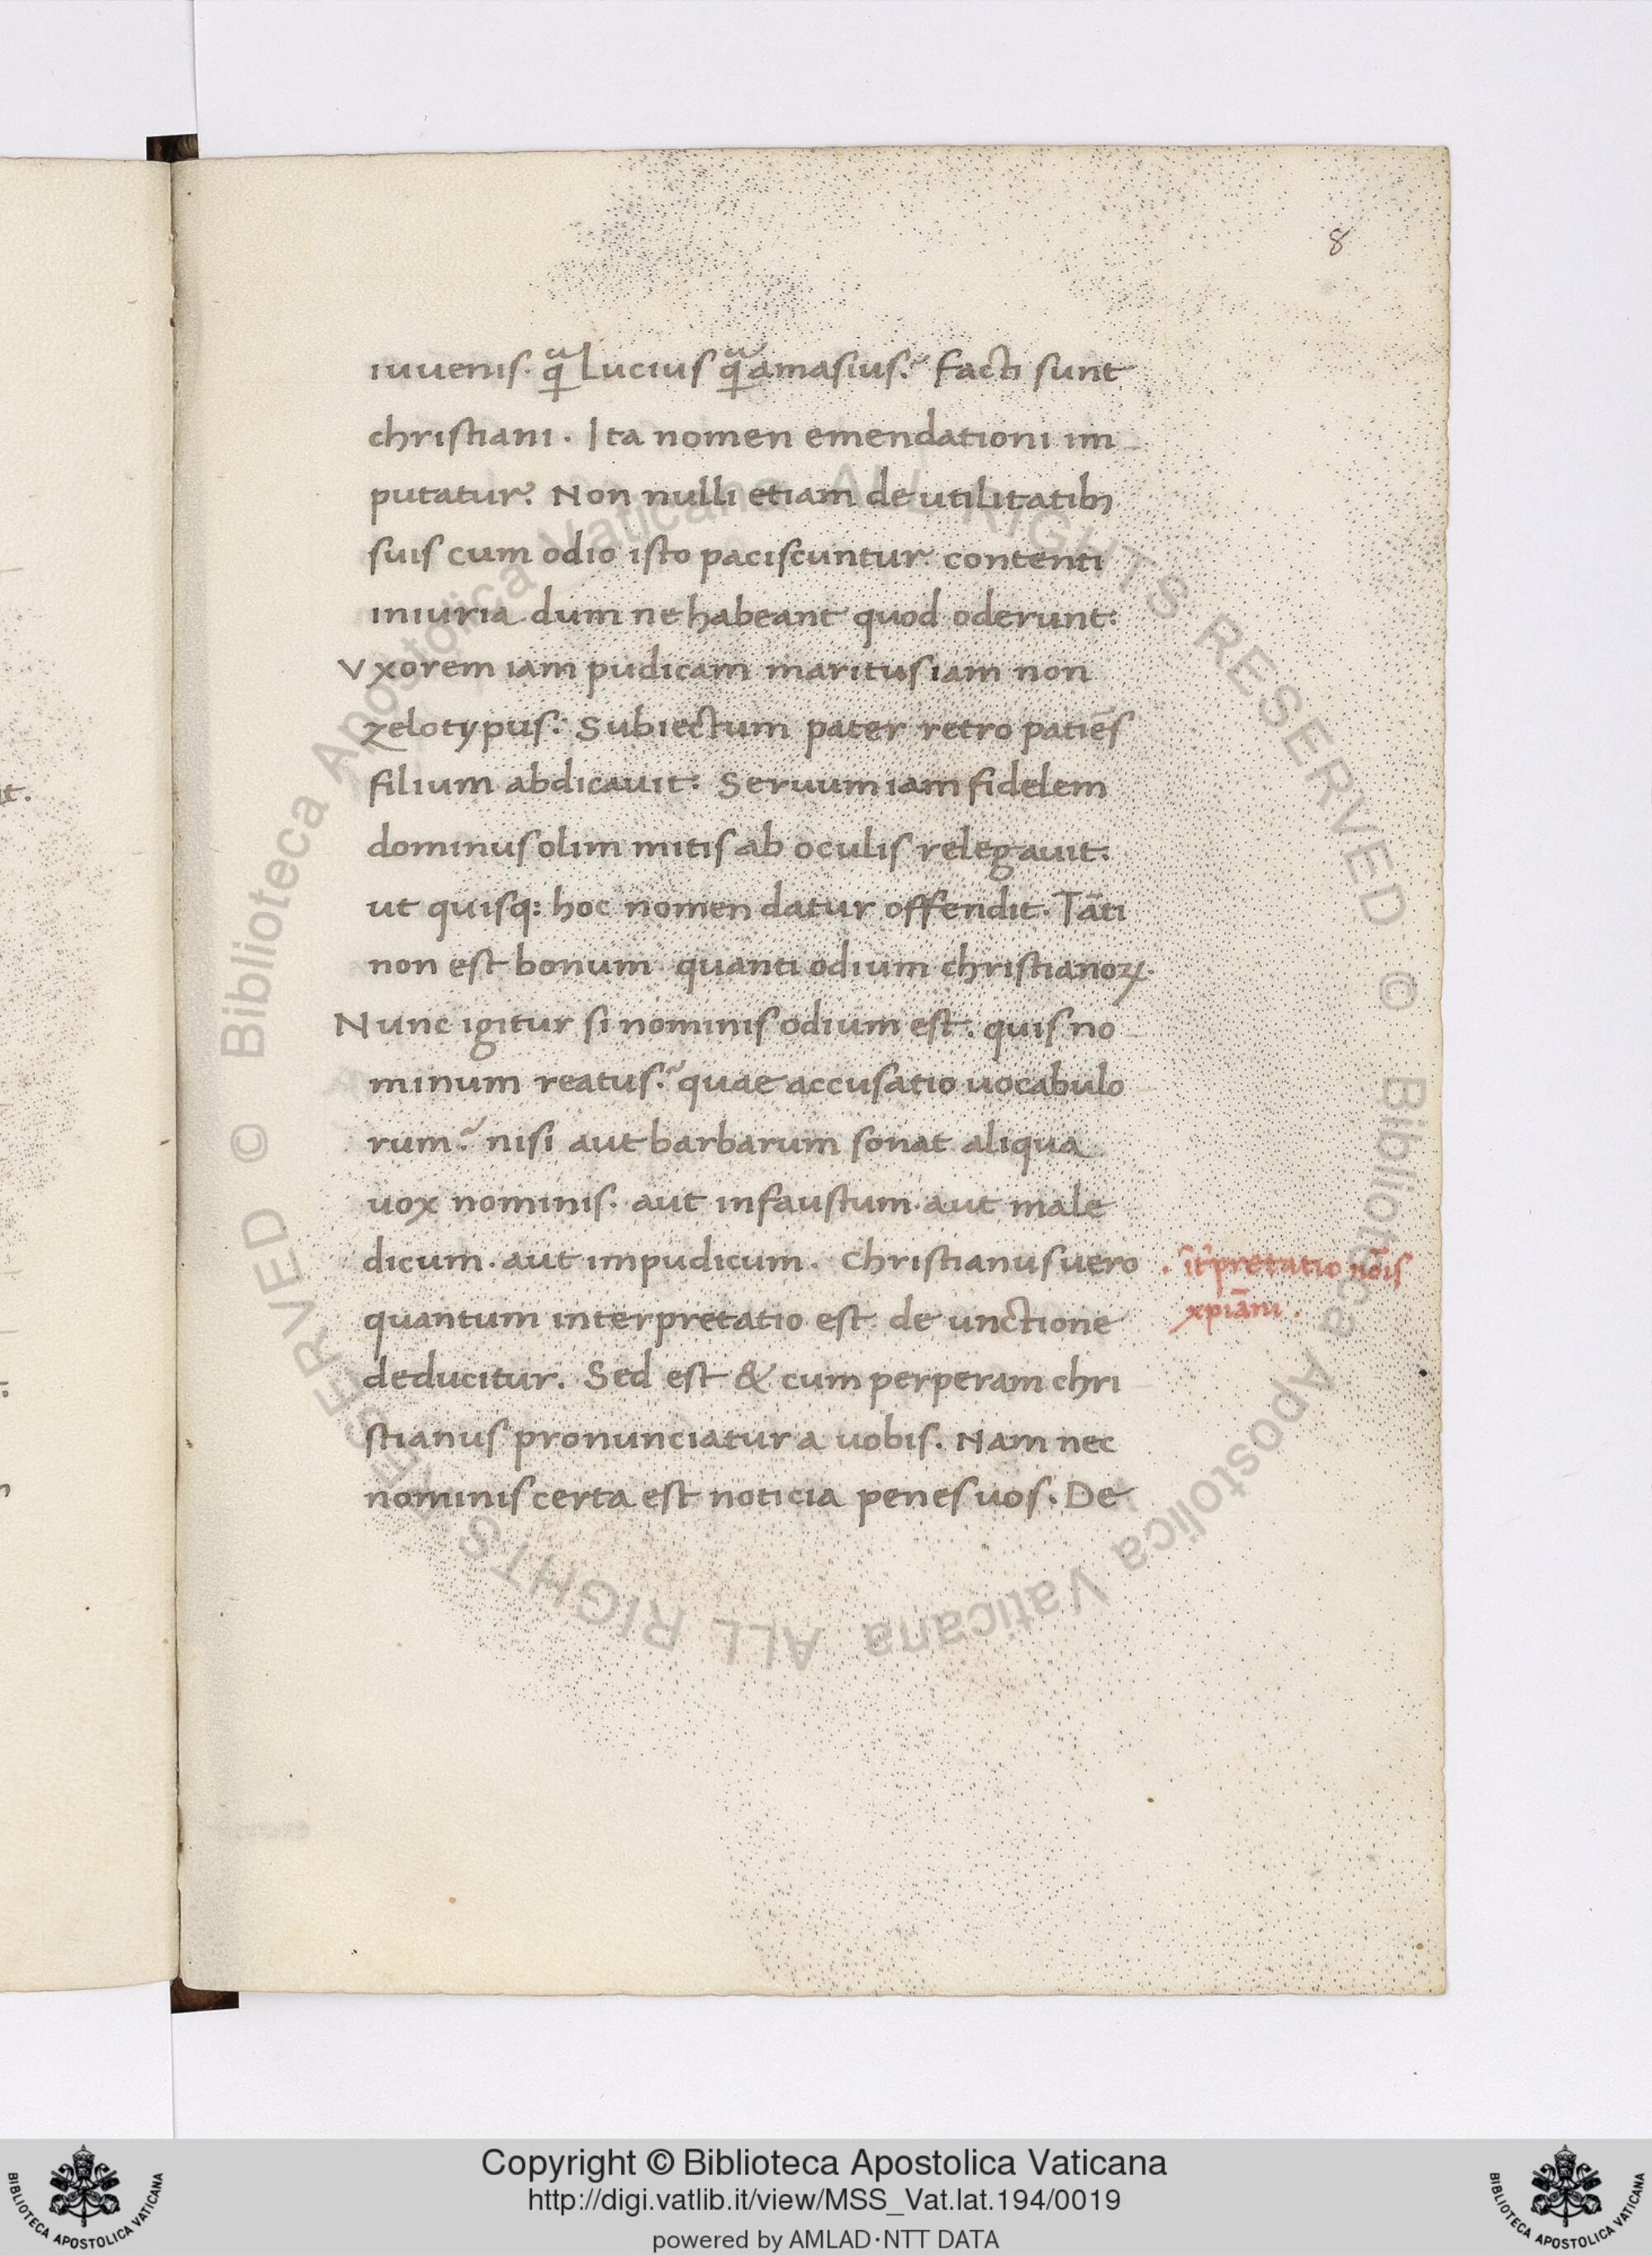 8
iuuenis. qͣ Lucius qͣ amasius? Facti sunt
christiani. Ita nomen emendationi im-
putatur? Non nulli etiam de utilitatibꝫ
suis cum odio isto paciscuntur. contenti
iniuria dum ne habeant quod oderunt:
Vxorem iam pudicam maritus iam non
zelotypus: Subiectum pater retro patiēs
filium abdicauit: Seruum iam fidelem
dominus olim mitis ab oculis relegauit:
ut quisq: hoc nomen datur offendit. Tāti
non est bonum. quanti odium christianoꝝ.
Nunc igitur si nominis odium est. quis no-
minum reatus? quae accusatio uocabulo-
rum? nisi aut barbarum sonat aliqua
uox nominis. aut infaustum. aut male
dicum. aut impudicum. Christianus uero
quantum interpretatio est. de unctione
deducitur. Sed est & cum perperam chri-
stianus pronunciatur a uobis. Nam nec
nominis certa est noticia penes uos. De
. īt͛pretatio nōis
xpiāni.
© Biblioteca Apostolica Vaticana ALL RIGHTS RESERVED © Biblioteca Apostolica Vaticana ALL RIGHTS RESERVED
Copyright © Biblioteca Apostolica Vaticana
http://digi.vatlib.it/view/MSS_Vat.lat.194/0019
powered by AMLAD·NTT DATA
BIBLIOTECA APOSTOLICA VATICANA
BIBLIOTECA APOSTOLICA VATICANA